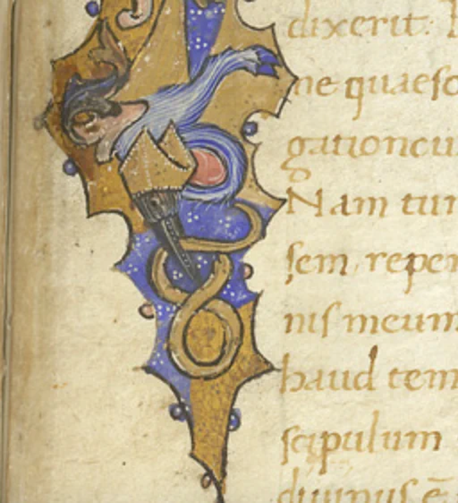 dixerit:
ne quaeso
gationcu
Nam tun
sem reper
nis meum
haud tem
scipulum
diuinus ē